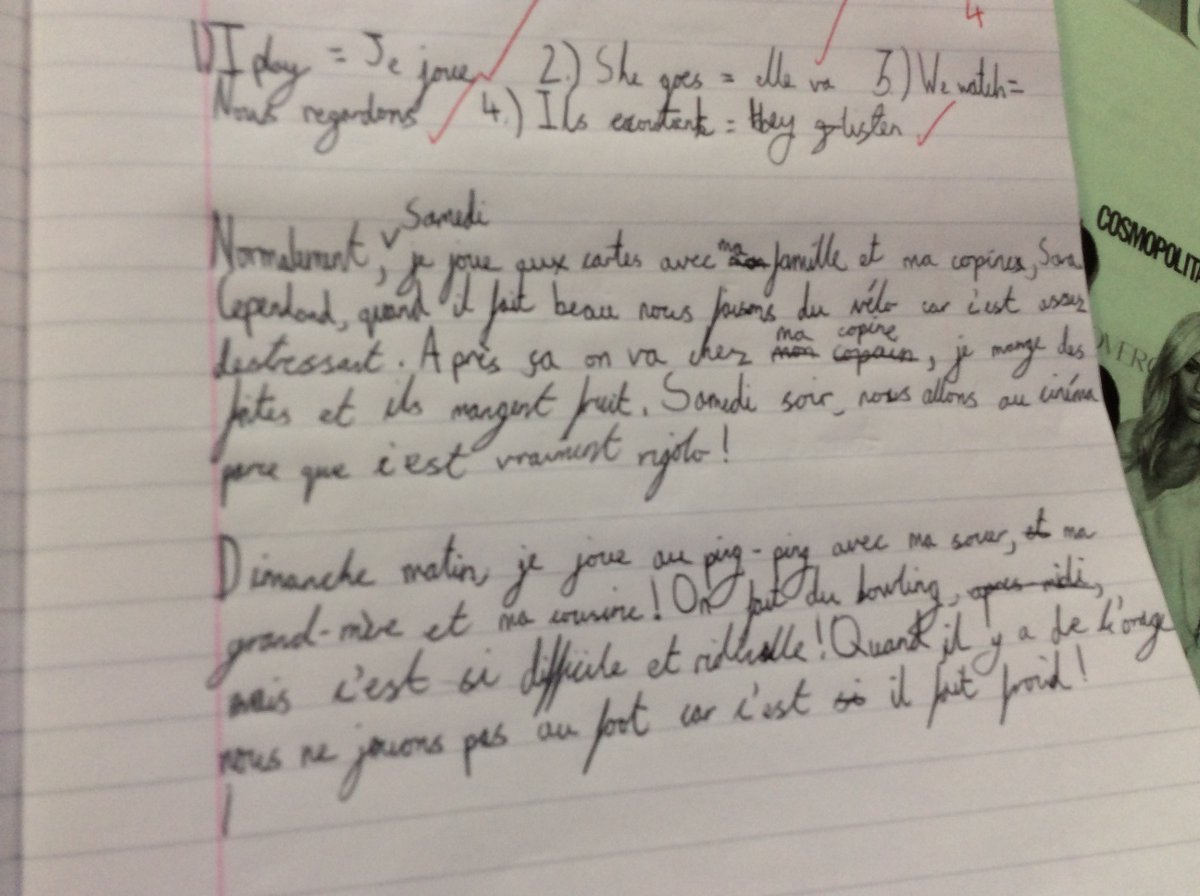 4
1) I play = Je joue 2.) She goes = elle va 3.) We watch =
Nous regardons 4.) Ils écoutent = they listen
Samedi
Normalement, je joue aux cartes avec ma famille et ma copines, Sara
Cependand, quand il fait beau nous faisons du vélo car c'est assez
ma copine
destressant. Après ça on va chez mon copain, je mange des
frites et ils mangent fruit. Samedi soir, nous allons au cinéma
parce que c'est vraiment rigolo!
Dimanche matin, je joue au ping-ping avec ma souer, et ma
grand-mère et ma cousine! On fait du bowling, apres-midi,
mais c'est si difficile et ! Quant il y a de l'orage
nous ne jouons pas au foot car c'est si il fait froid!
COSMOPOLITA